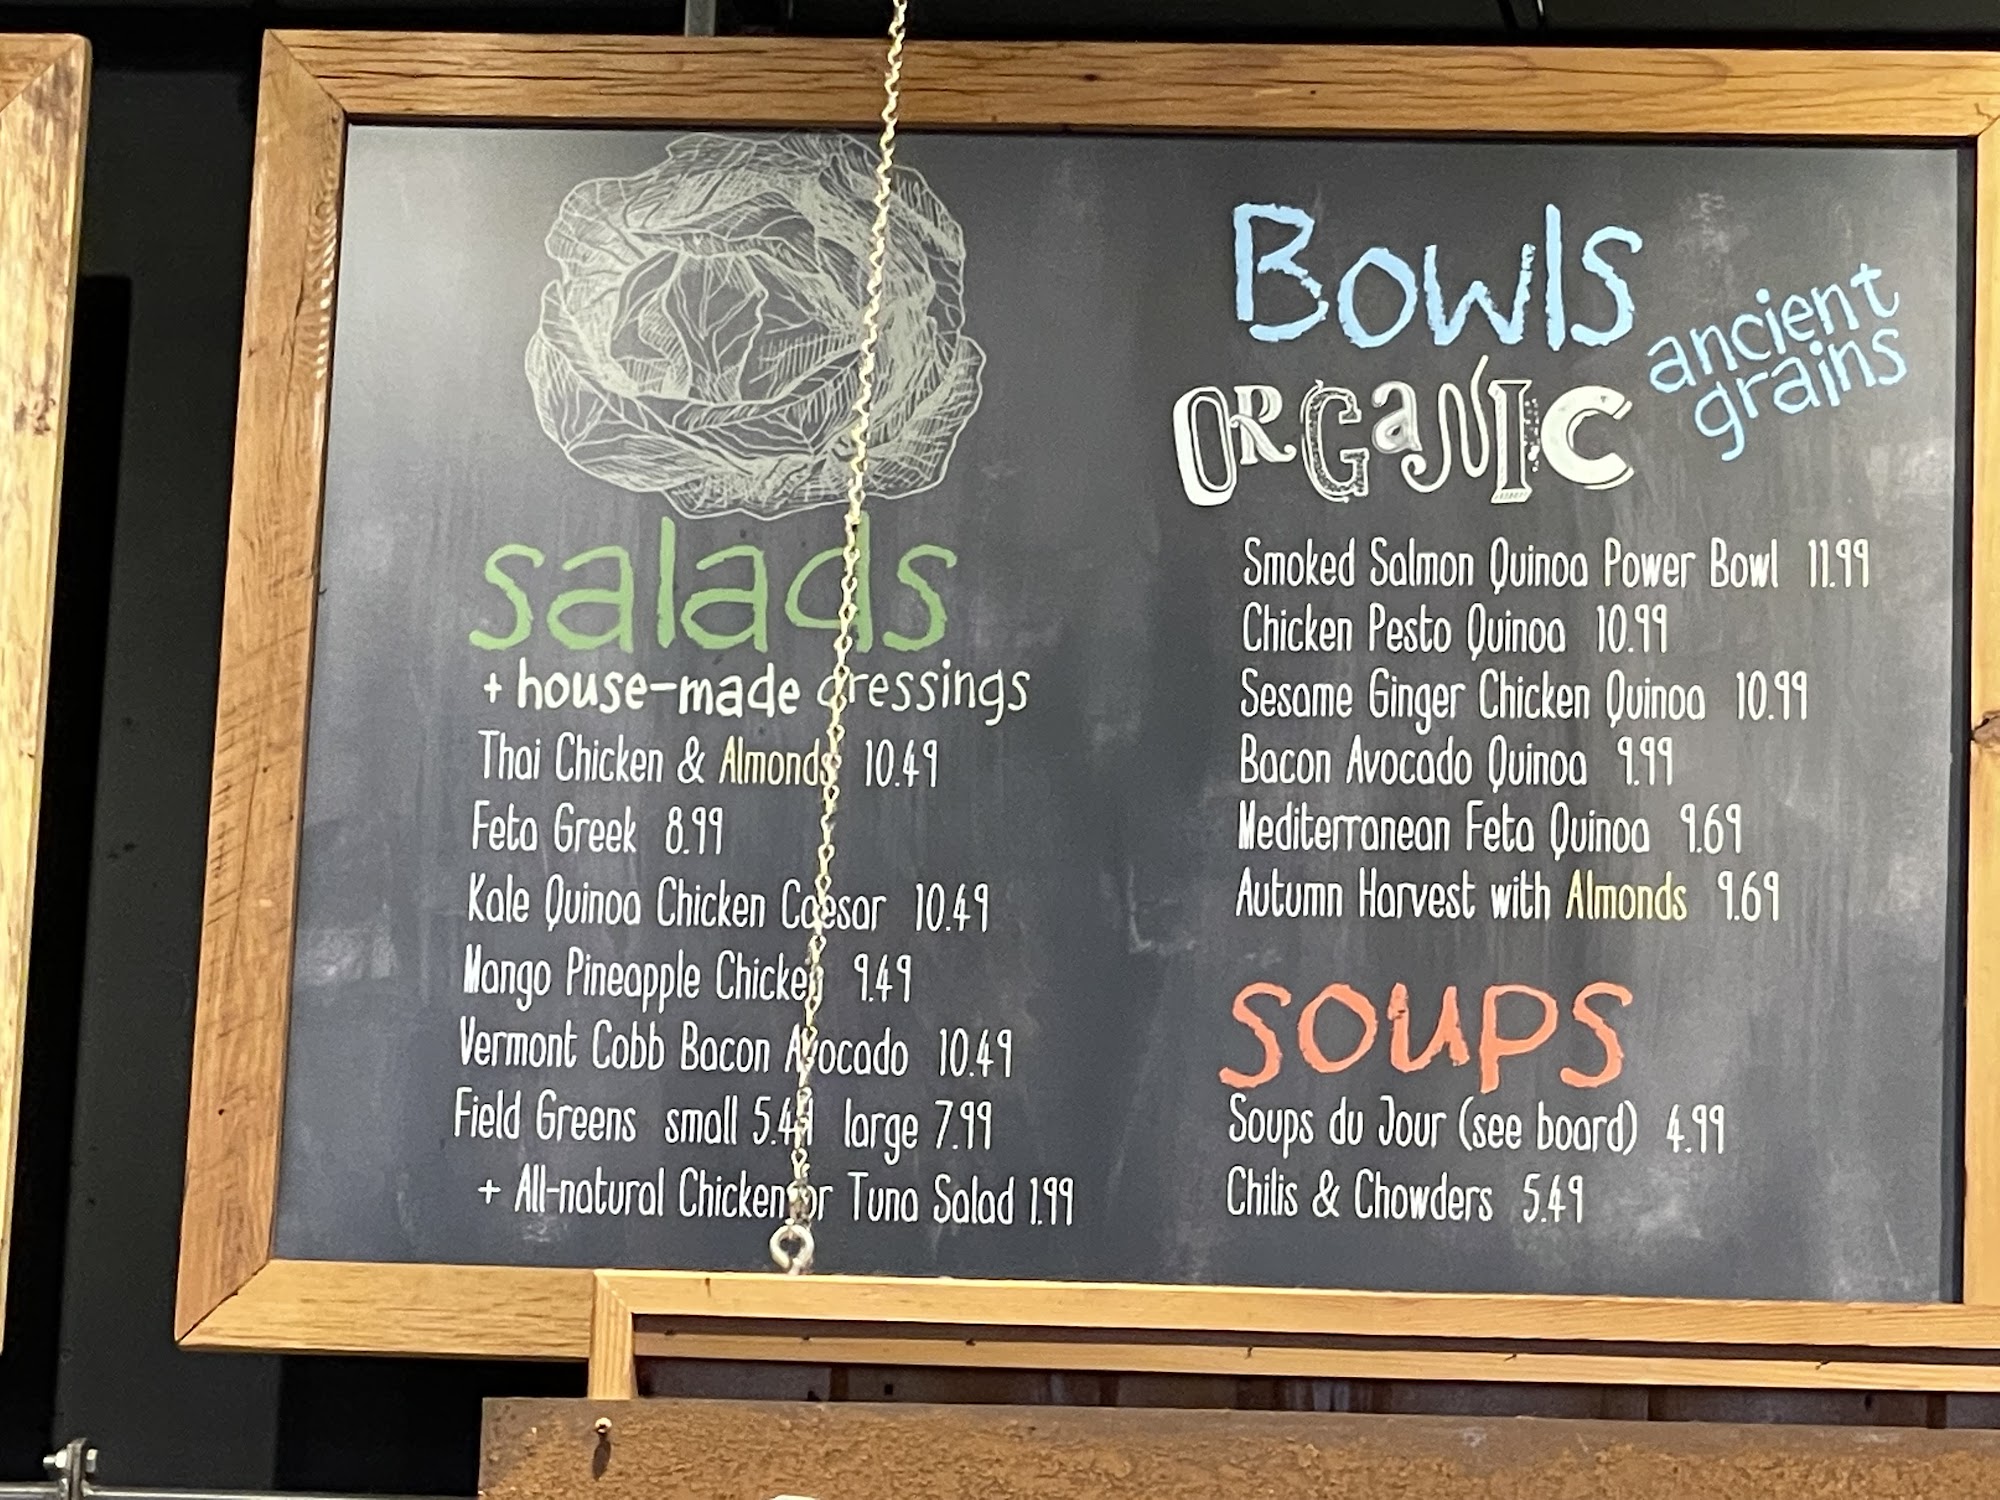 salads
+ house-made dressings
Thai Chicken & Almonds 10.49
Feta Greek 8.99
Kale Quinoa Chicken Caesar 10.49
Mango Pineapple Chicken 9.49
Vermont Cobb Bacon Avocado 10.49
Field Greens small 5.49 large 7.99
+ All-natural Chicken or Tuna Salad 1.99
Bowls
ancient
grains
ORGANIC
Smoked Salmon Quinoa Power Bowl 11.99
Chicken Pesto Quinoa 10.99
Sesame Ginger Chicken Quinoa 10.99
Bacon Avocado Quinoa 9.99
Mediterranean Feta Quinoa 9.69
Autumn Harvest with Almonds 9.69
SOUPS
Soups du Jour (see board) 4.99
Chilis & Chowders 5.49